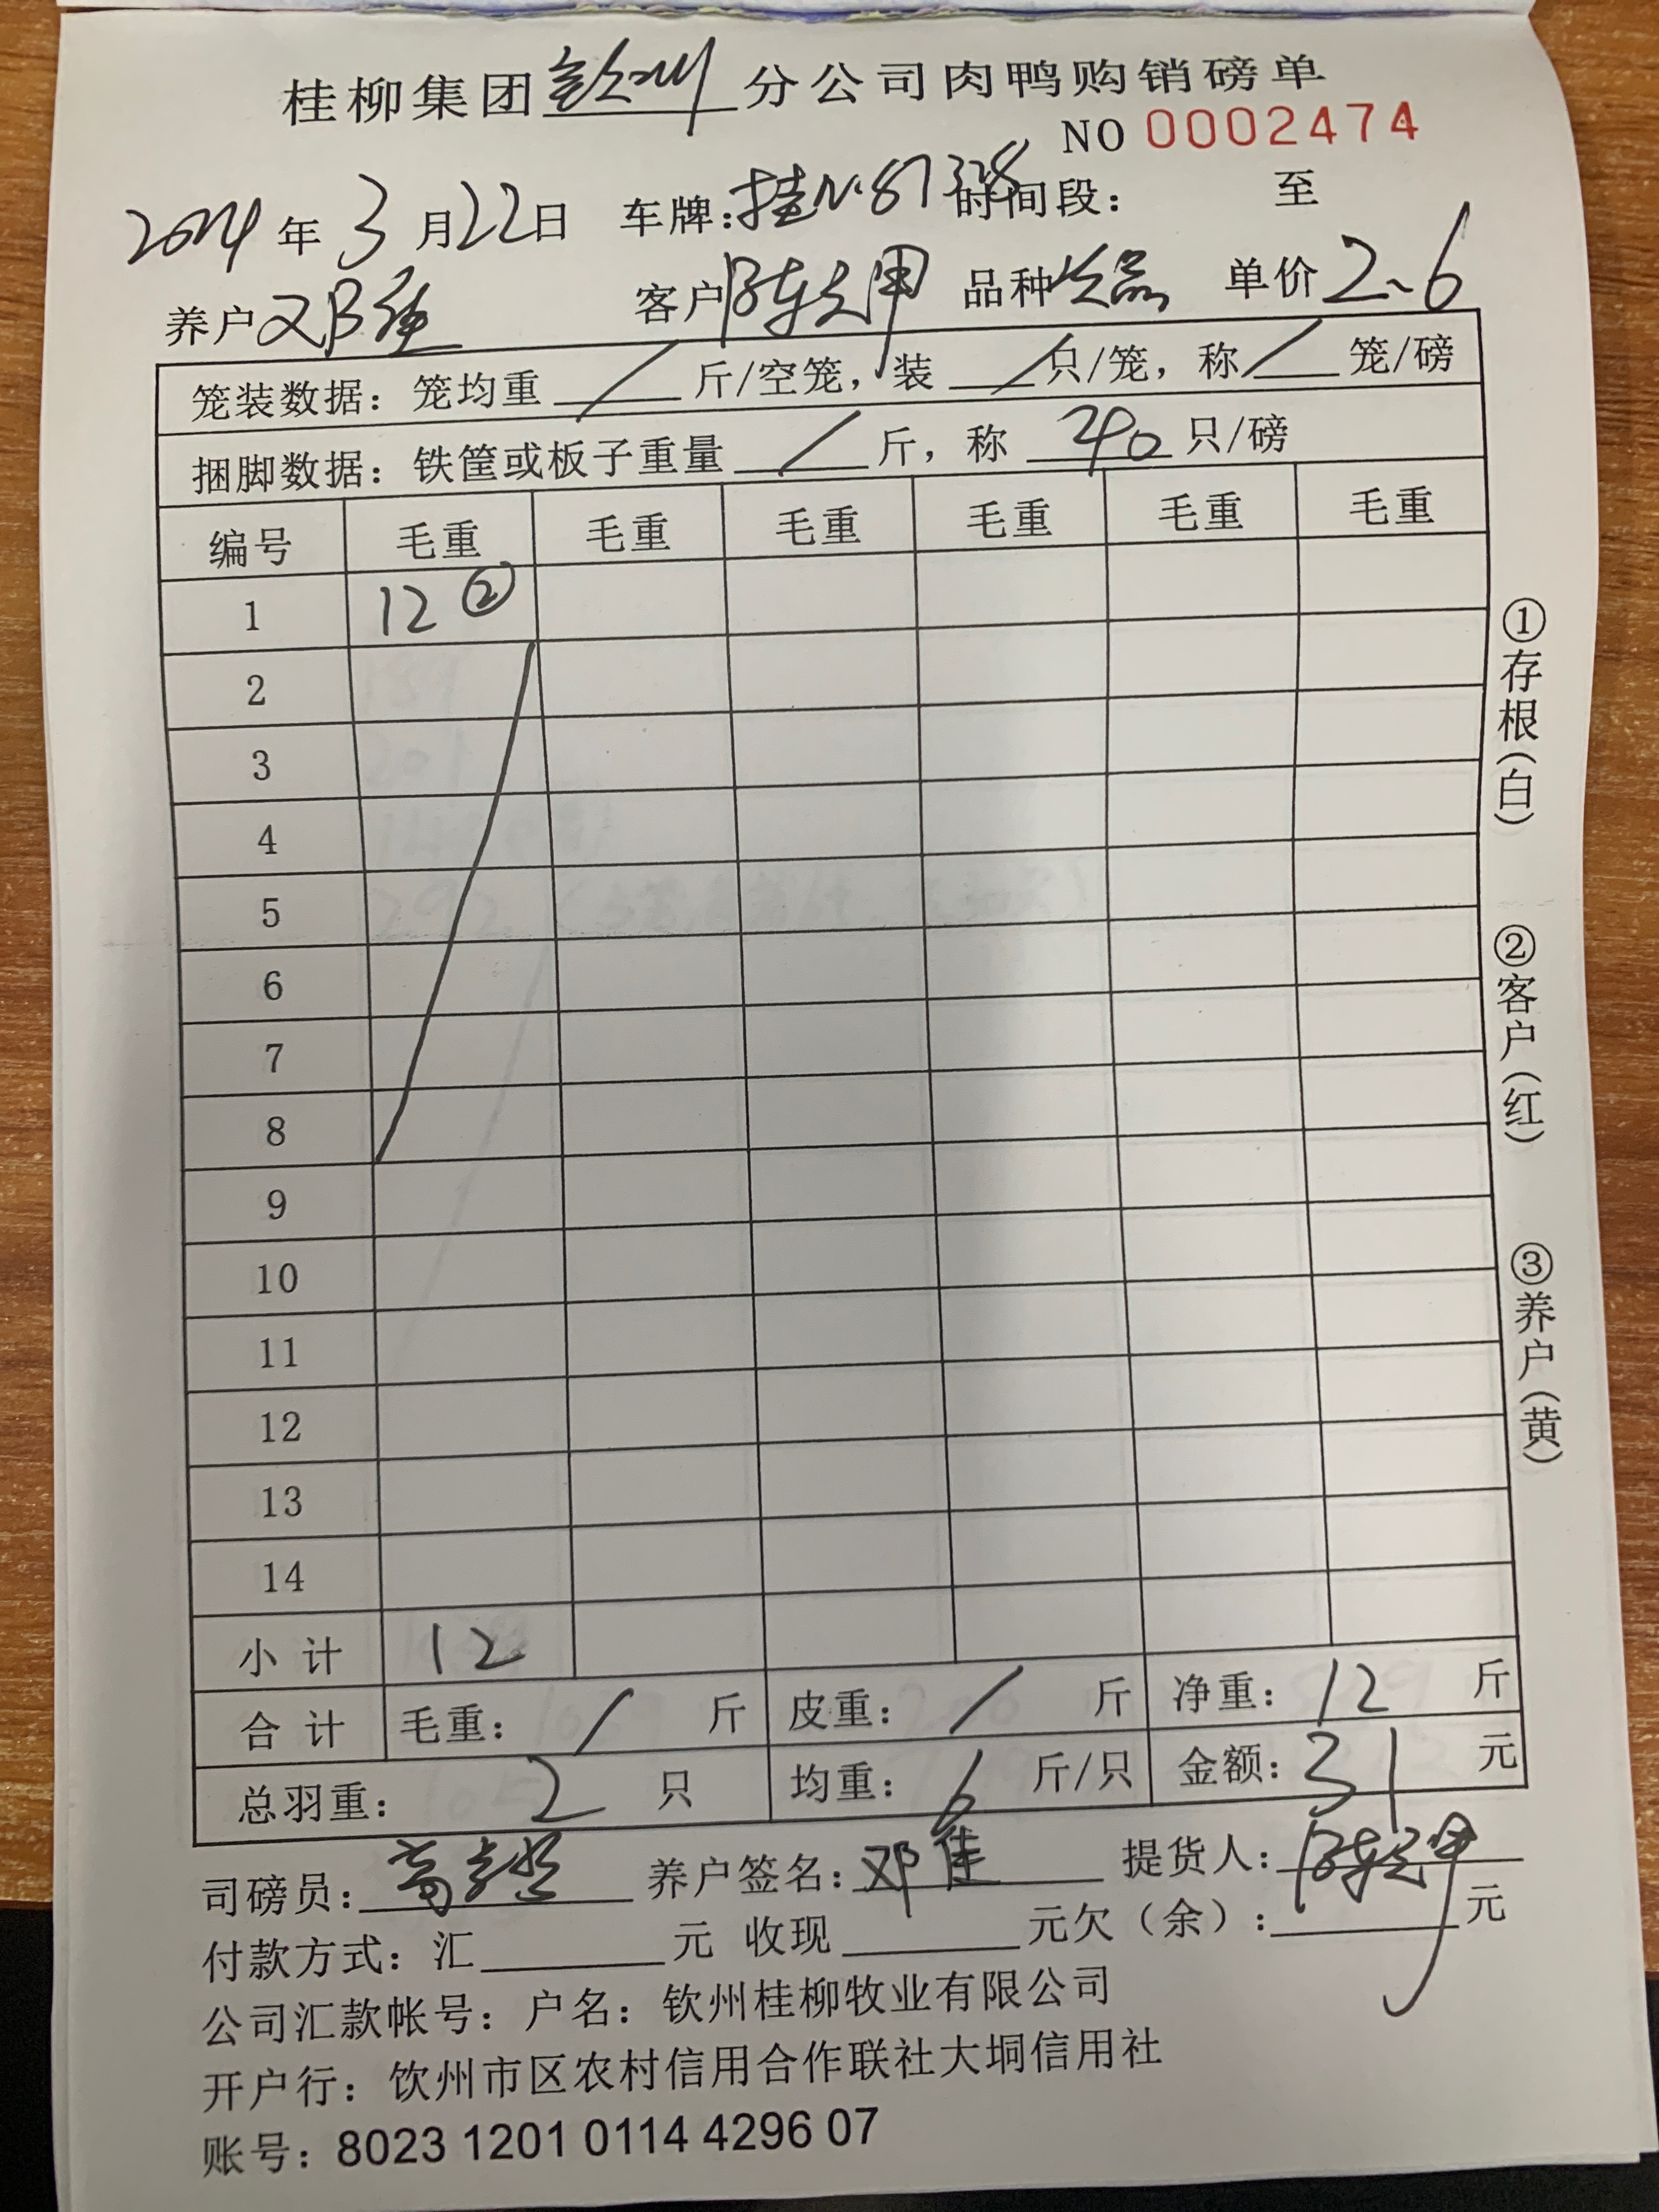 桂柳集团钦州分公司肉鸭购销磅单
NO 0002474
2024年3月22日 车牌:桂N·87328 时间段: 至
养户邓佳 客户陈之甲 品种次品 单价2.6
笼装数据: 笼均重 / 斤/空笼, 装 / 只/笼, 称 / 笼/磅
捆脚数据: 铁筐或板子重量 / 斤, 称 240 只/磅
编号 毛重 毛重 毛重 毛重 毛重 毛重
1 12 ②
2
3
4
5
6
7
8
9
10
11
12
13
14
小计 12
合计 毛重: / 斤 皮重: / 斤 净重: 12 斤
总羽重: 2 只 均重: 6 斤/只 金额: 31 元
司磅员: 养户签名: 邓佳 提货人: 陈之甲
付款方式: 汇 元 收现 元欠(余): 元
公司汇款帐号: 户名: 钦州桂柳牧业有限公司
开户行: 钦州市区农村信用合作联社大垌信用社
账号: 8023 1201 0114 4296 07
①存根(白)
②客户(红)
③养户(黄)